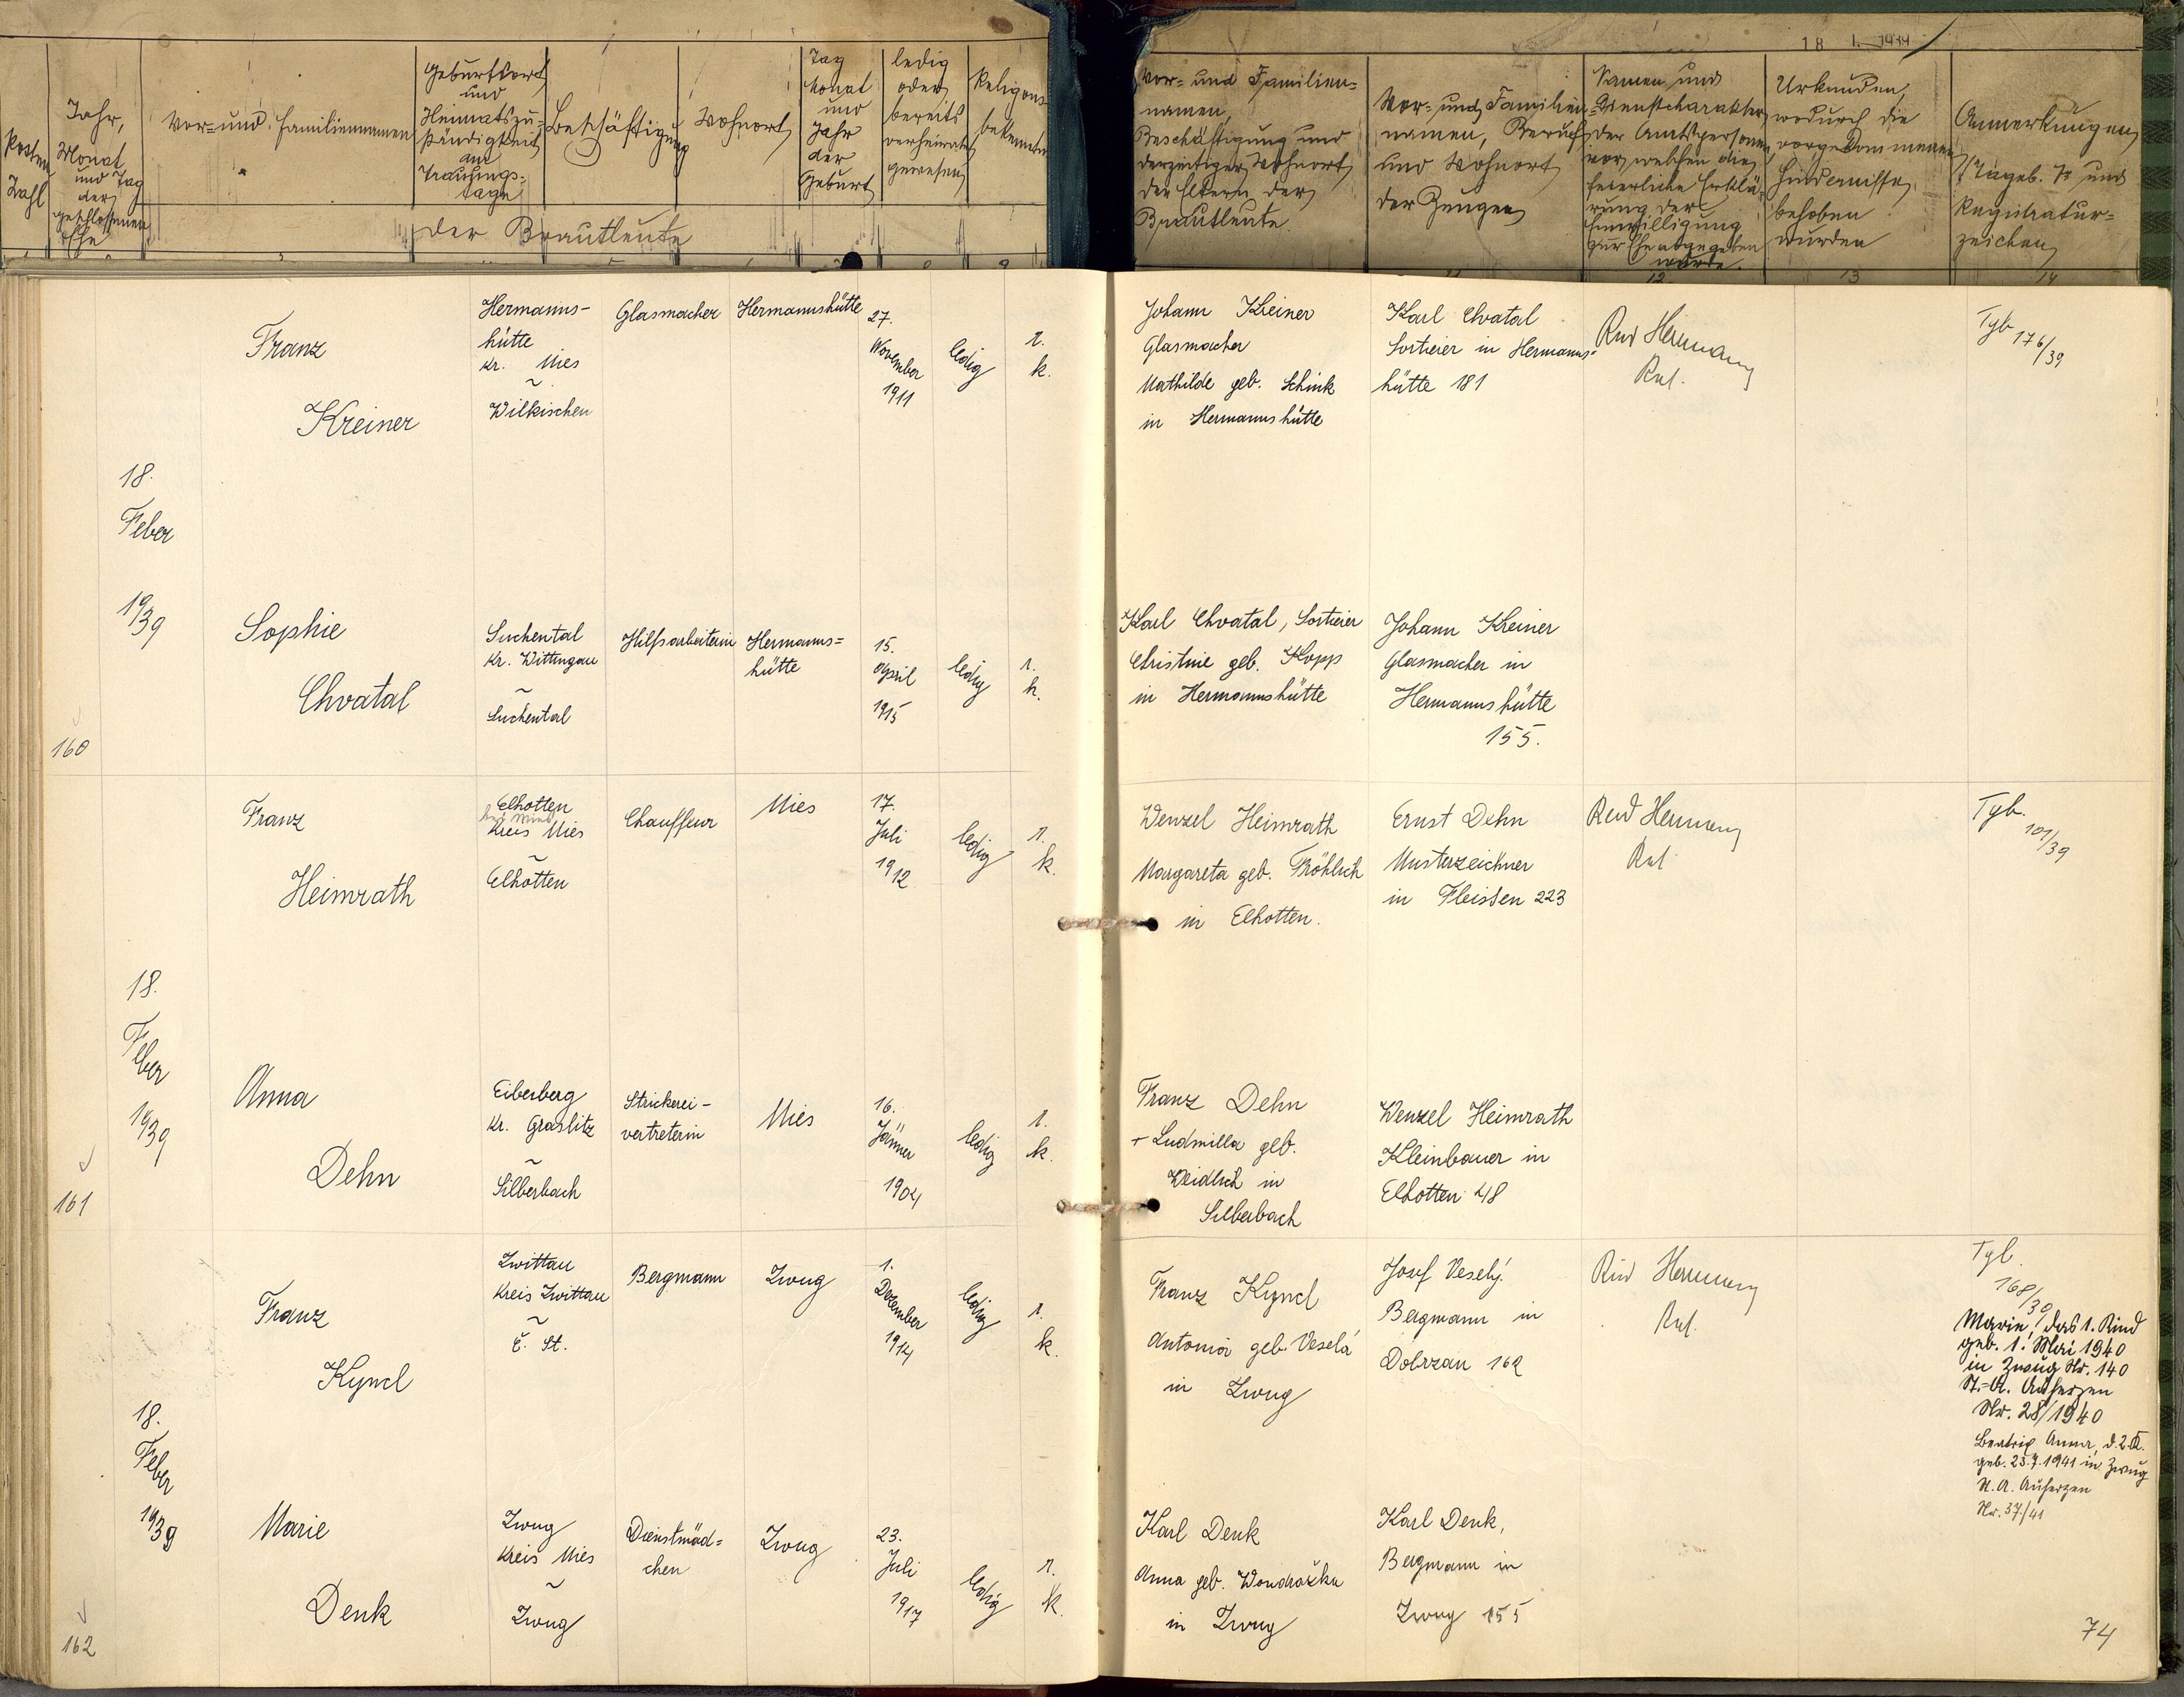 Posten
Zahl
Jahr,
Monat
und Tag
der
geschlossenen
Ehe
Vor- und Familiennamen
Geburtsort
und
Heimatszu-
ständigkeit
am
Trauungs-
tage
Beschäftigung
Wohnort
Tag
Monat
und
Jahr
der
Geburt
ledig
oder
bereits
verheiratet
gewesen
Religions
bekenntnis
der Brautleute
Vor- und Familien-
namen,
Beschäftigung und
derzeitiger Wohnort
der Eltern der
Brautleute.
Vor- und Familien
namen, Beruf
und Wohnort
der Zeugen
Namen und
Dienstcharakter
der Amtspersonen
vor welchen die
feierliche Erklä-
rung der
Einwilligung
zur Ehe abgegeben
wurde.
Urkunden,
wodurch die
vorgekommenen
Hindernisse
behoben
wurden
Anmerkungen
Tageb. Zl. und
Registratur-
zeichen
12
13
14
160
18.
Feber
19/39
Franz
Kreiner
Hermanns-
hütte
Kr. Mies
~
Wilkischen
Glasmacher
Hermannshütte
27.
November
1911
ledig
r.
k.
Johann Kreiner
Glasmacher
Mathilde geb. Schink
in Hermannshütte
Karl Chvatal
Sortierer in Hermanns-
hütte 181
Tgb
176/39
Sophie
Chvatal
Suchental
Kr. Wittingau
~
Suchental
Hilfsarbeiterin
Hermanns=
hütte
15.
April
1915
ledig
r.
k.
Karl Chvatal, Sortierer
Christine geb. Kopp
in Hermannshütte
Johann Kreiner
Glasmacher in
Hermannshütte
155.
161
18.
Feber
19/39
Franz
Heimrath
Elhotten
bei Mies
Kreis Mies
~
Elhotten
Chauffeur
Mies
17.
Juli
1912
ledig
r.
k.
Wenzel Heimrath
Margareta geb. Fröhlich
in Elhotten.
Ernst Dehn
Musterzeichner
in Fleissen 223
Tgb.
101/39
Anna
Dehn
Eibenberg
Kr. Graslitz
~
Silberbach
Strickerei-
vertreterin
Mies
16.
Jänner
1904
ledig
r.
k.
Franz Dehn
+ Ludmilla geb.
Weidlich in
Silberbach
Wenzel Heimrath
Kleinbauer in
Elhotten 48
162
18.
Feber
19/39
Franz
Kyncl
Zwittau
Kreis Zwittau
~
Č. St.
Bergmann
Zwug
1.
Dezember
1914
ledig
r.
k.
Franz Kyncl
Antonia geb. Veselá
in Zwug
Josef Veselý
Bergmann in
Dobrzan 162
Tgb.
168/39
Marie, das 1. Kind
geb. 1. Mai 1940
in Zwug Nr. 140
St.-A. Auherzen
Nr. 28/1940
Beatrix Anna, d. 2. K.
geb. 23.7.1941 in Zwug
St. A. Auherzen
Nr. 37/41
Marie
Denk
Zwug
Kreis Mies
~
Zwug
Dienstmäd=
chen
Zwug
23.
Juli
1917
ledig
r.
k.
Karl Denk
Anna geb. Wondraschka
in Zwug
Karl Denk,
Bergmann in
Zwug 155
74